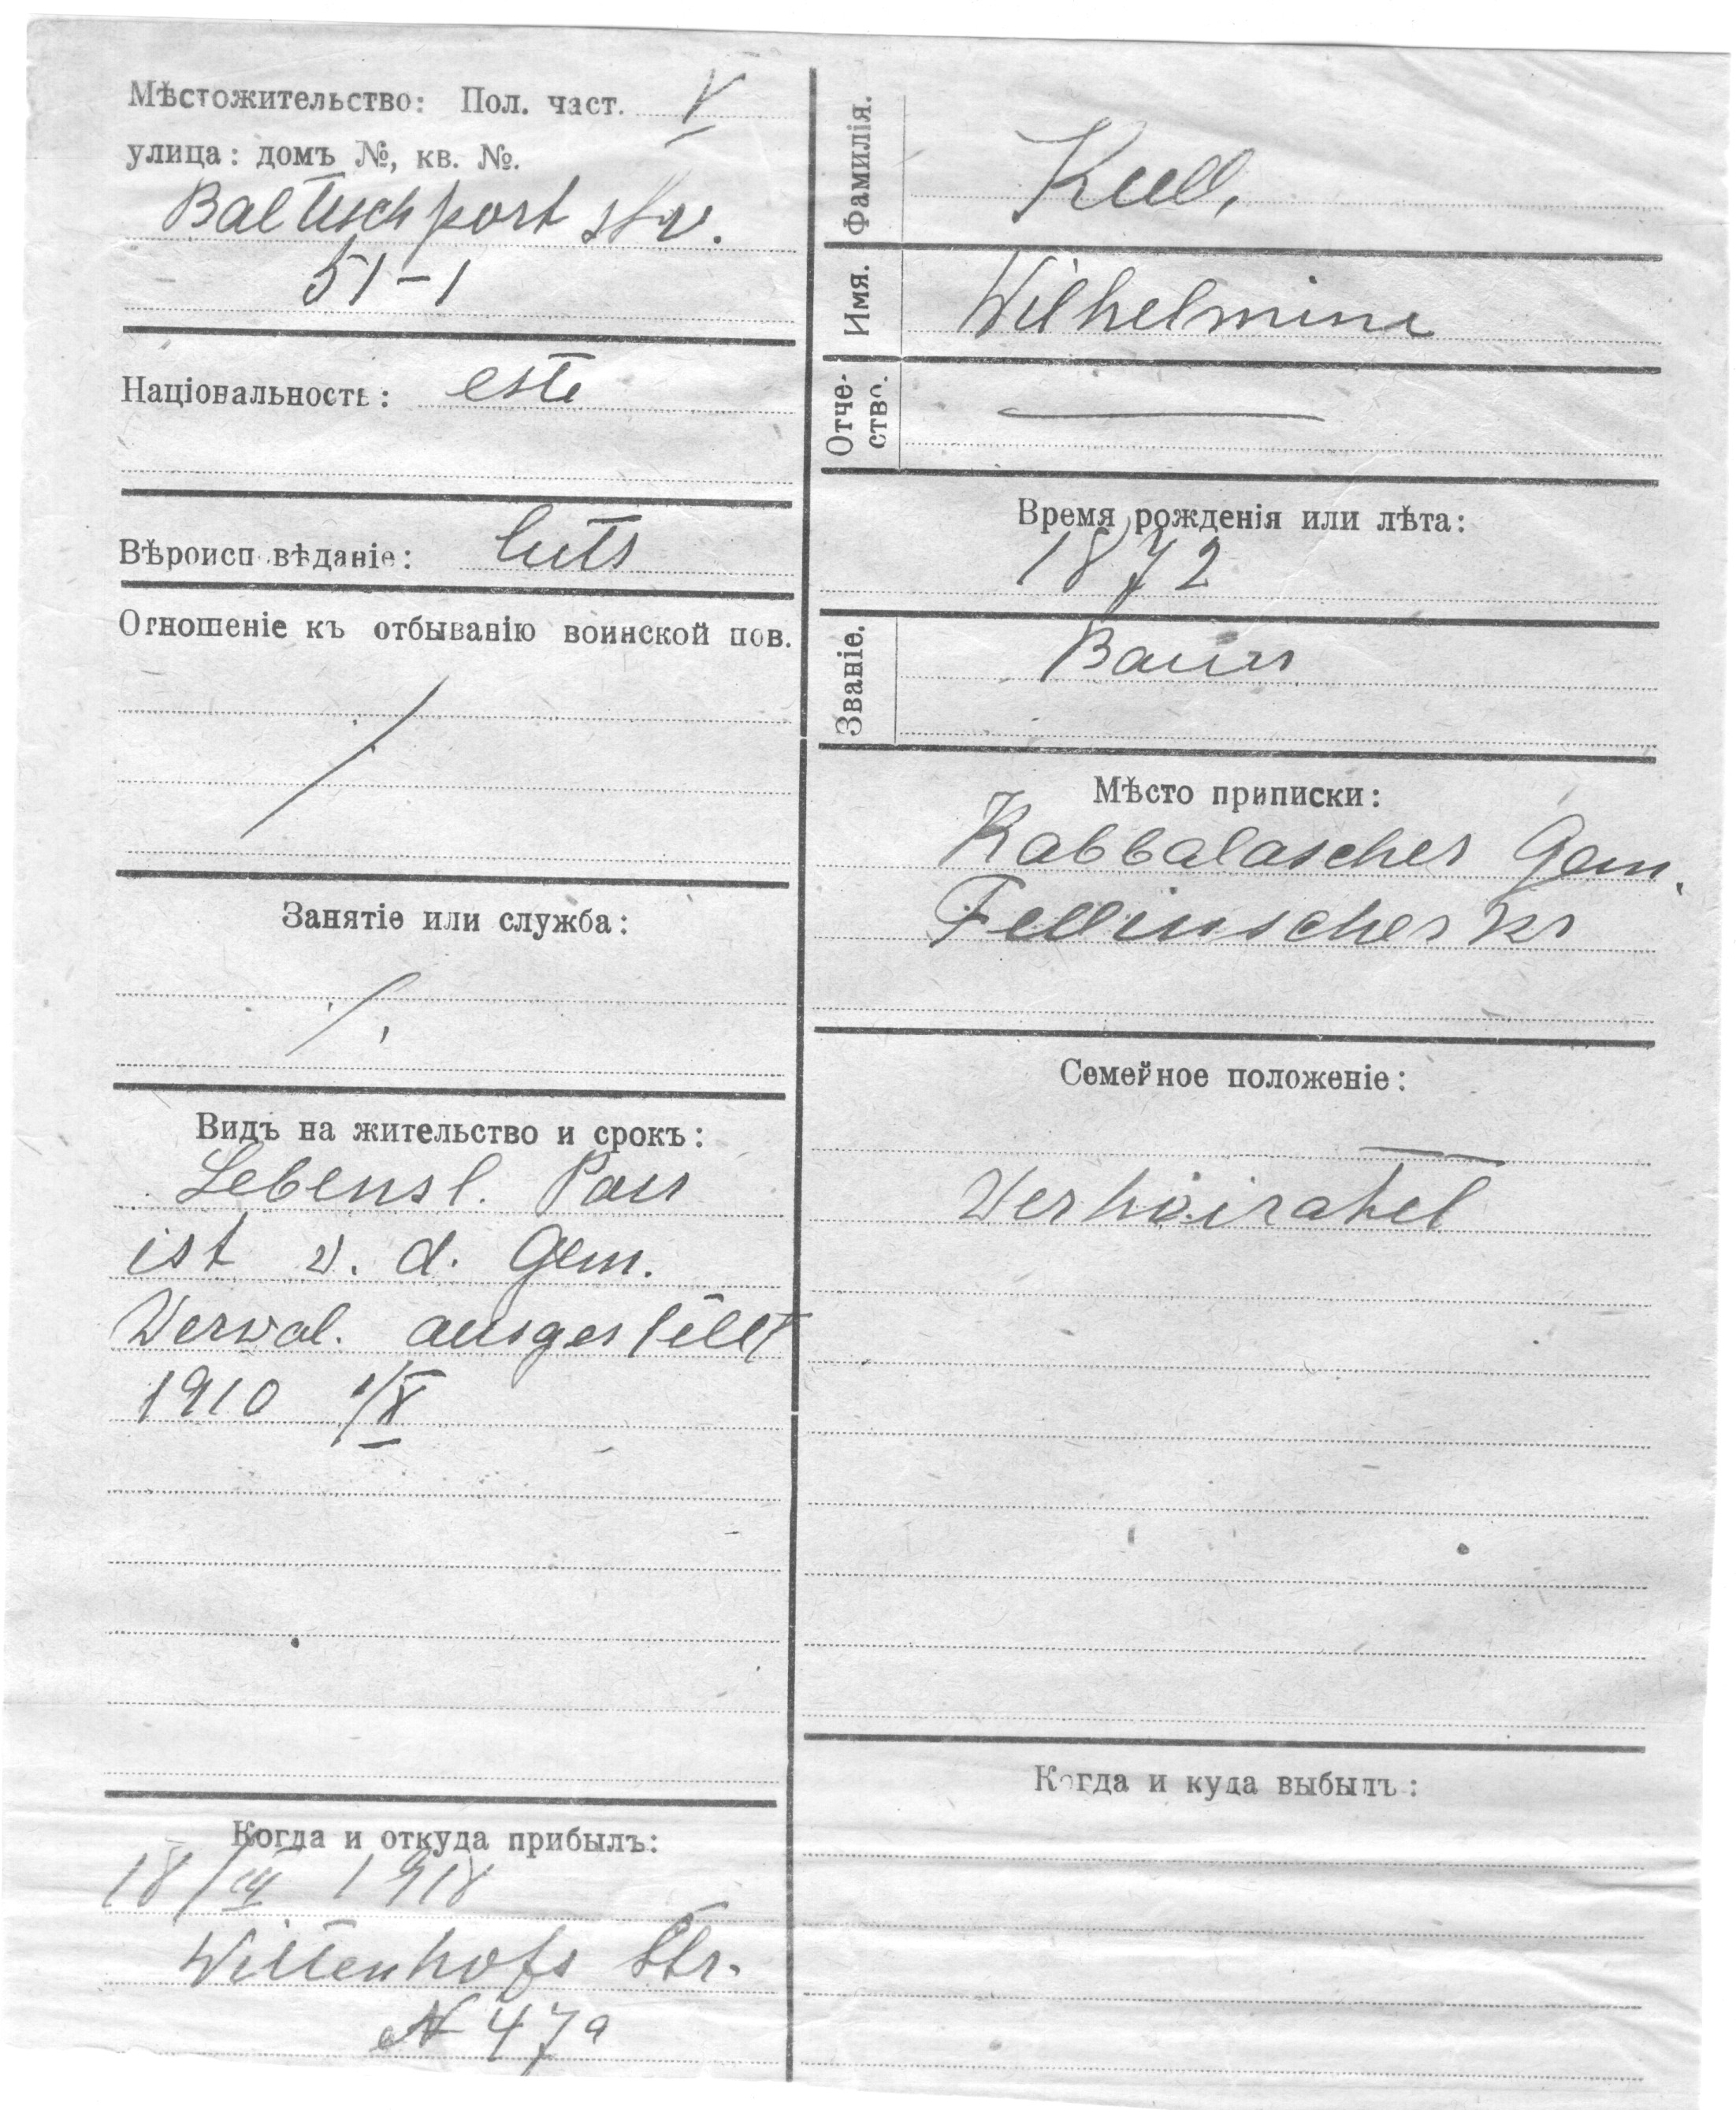 Мѣстожительство: Пол. част. V
улица: домъ №, кв. №.
Baltischport str.
51-1
Національность: este
Вѣроисп вѣданіе: luts
Отношеніе къ отбыванію воинской пов.
Занятіе или служба:
Видъ на жительство и срокъ:
Lebensl. Pass
ist v. d. Gem.
Verwal. ausgestellt
1910 1/X
Когда и откуда прибылъ:
18/III 1918
Wittenhofs Str.
N 47a
Фамилія. Kull,
Имя. Wilhelmine
Отче-
ство.
Время рожденія или лѣта:
1872
Званіе. Bauer
Мѣсто приписки:
Kabbalascher Gem.
Fellinscher Kr
Семейное положеніе:
Verheiratet
Когда и куда выбылъ: